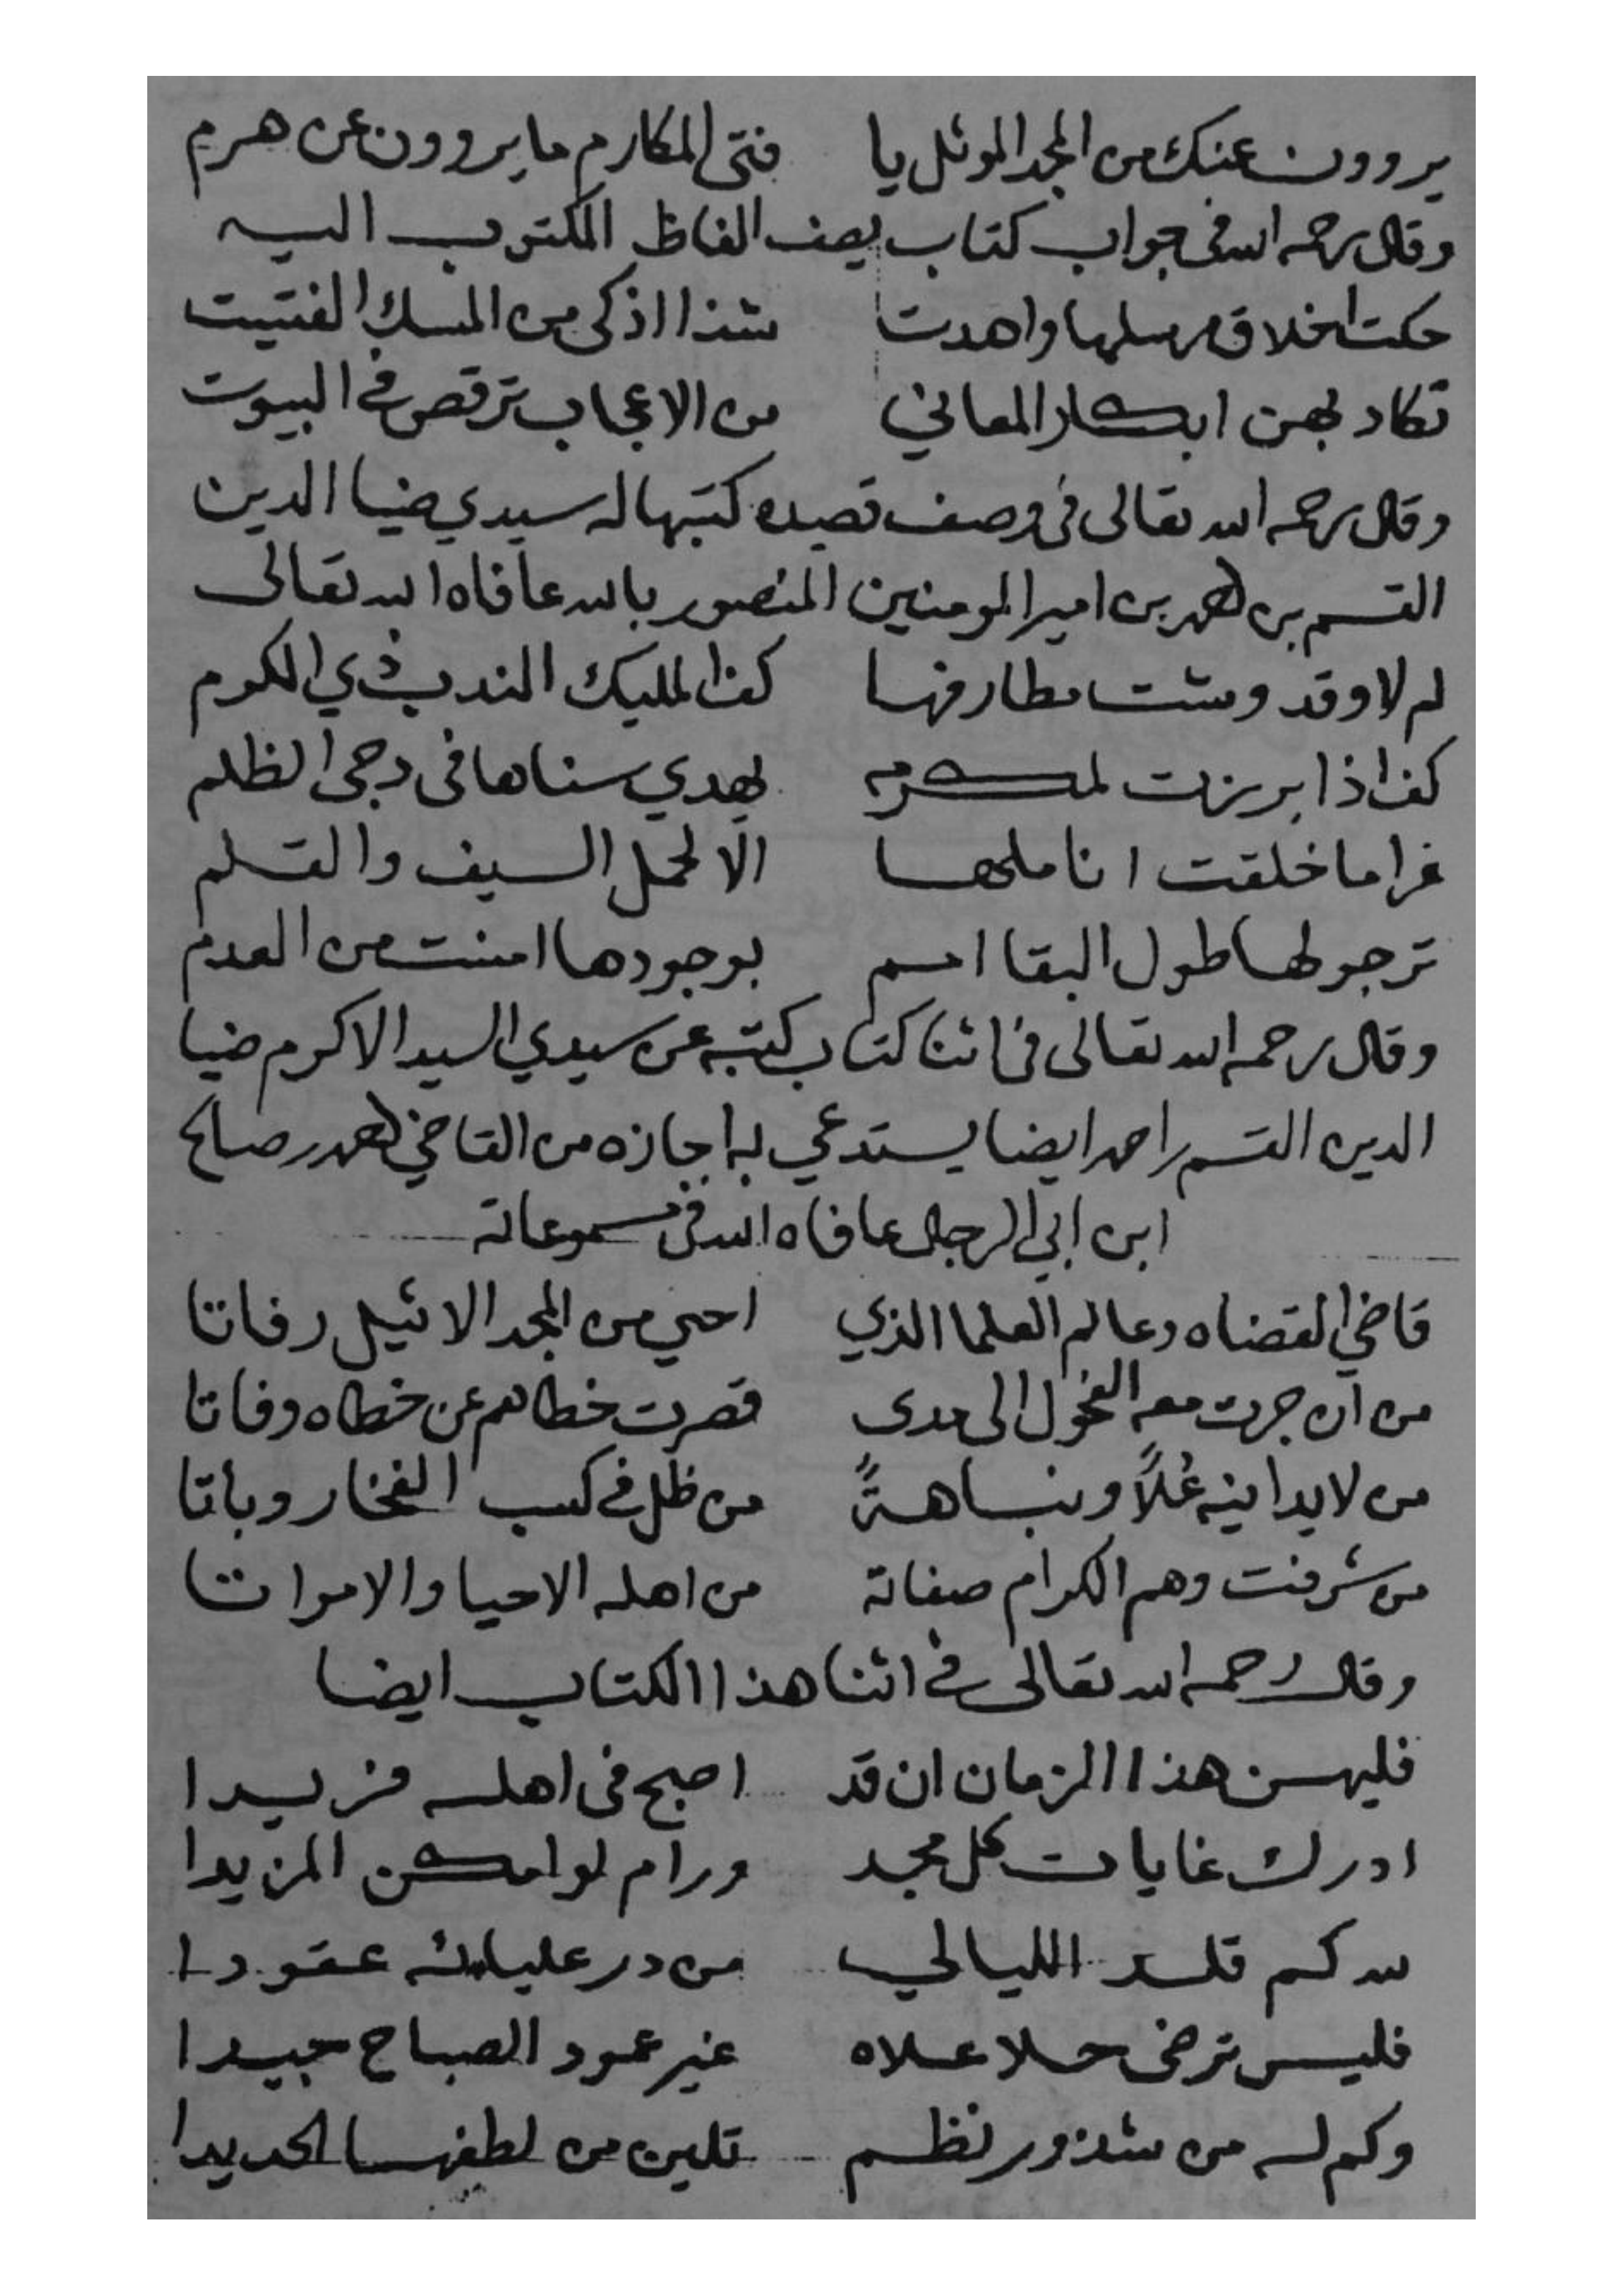 يروون عنك من المجد الموثل يا فتى المكارم ما يروون عن هرم
وقال رحمه الله في جواب كتاب يصف الفاظ المكتوب اليه
حكت اخلاق مرسلها واهدت شذا اذكى من المسك الفتيت
تكاد بهن ابكار المعاني من الاعجاب ترقص في البيوت
وقال رحمه الله تعالى في وصف قصيده كتبها له سيدي ضيا الدين
القسم بن احمد بن امير المومنين المنصور بالله عافاه الله تعالى
لم لا وقد وشت مطارفها كف المليك الندب ذي الكرم
كف اذا برزت لمكرمه يهدي سناها في دجى الظلم
غرا ما خلقت اناملها الا لحمل السيف والقلم
ترجو لها طول البقا امم بوجودها امنت من العدم
وقال رحمه الله تعالى في اثنا كتاب كتبه عن سيدي السيد الاكرم ضيا
الدين القسم بن احمد ايضا يستدعي به اجازه من القاضي احمد بن صالح
ابن ابي الرجال عافاه الله في مسموعاته
قاضي القضاه وعالم العلما الذي احيى من المجد الاثيل رفاتا
من ان جرت معه الفحول الى مدى قصرت خطاهم عن خطاه وفاتا
من لا يدانيه عُلاً ونباهةً من ظل في كسب الفخار وباتا
من شرفت وهم الكرام صفاته من اهله الاحيا والامواتا
وقال رحمه الله تعالى في اثنا هذا الكتاب ايضا
فليهن هذا الزمان ان قد اصبح في اهله فريدا
ادرك غايات كل مجد ورام لو امكن المزيدا
لله كم قلد الليالي من در عليائه عقودا
فليس ترضى حلا علاه غير عمود الصباح جيدا
وكم له من شذور نظم تلين من لطفها الحديدا